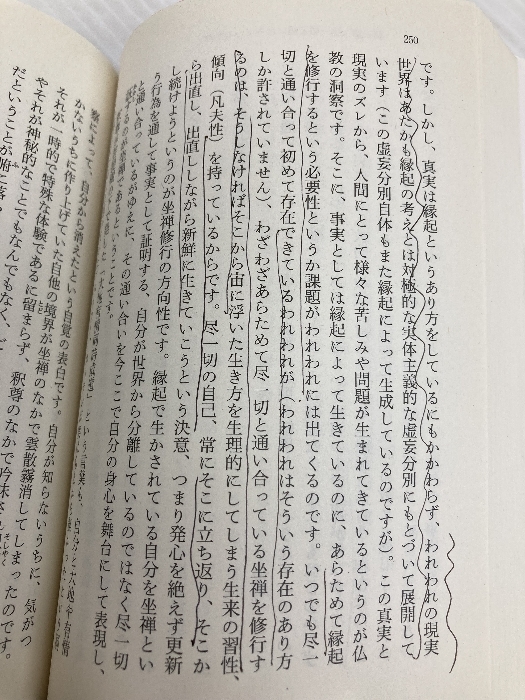 250
です。しかし、真実は縁起というあり方をしているにもかかわらず、われわれの現実
世界はあたかも縁起の考えとは対極的な実体主義的な虚妄分別にもとづいて展開して
います（この虚妄分別自体もまた縁起によって生成しているのですが）。この真実と
現実のズレから、人間にとって様々な苦しみや問題が生まれてきているというのが仏
教の洞察です。そこに、事実としては縁起によって生きているのに、あらためて縁起
を修行するという必要性というか課題がわれわれには出てくるのです。いつでも尽一
切と通い合って初めて存在できているわれわれが（われわれはそういう存在のあり方
しか許されていません）、わざわざあらためて尽一切と通い合っている坐禅を修行す
るのは、そうしなければそこから宙に浮いた生き方を生理的にしてしまう生来の習性、
傾向（凡夫性）を持っているからです。尽一切の自己、常にそこに立ち返り、そこか
ら出直し、出直ししながら新鮮に生きていこうという決意、つまり発心を絶えず更新
し続けようというのが坐禅修行の方向性です。縁起で生かされている自分を坐禅とい
う行為を通して事実として証明する、自分が世界から分離しているのではなく尽一切
と通い合っているがゆえに、その通い合いを今ここで自分の身心を舞台にして表現し、
するのが坐禅であるということです。
という言葉も、自分と大地や有情
察によって、自分から消えたという自覚の表白です。自分が知らないうちに、気がつ
かないうちに作り上げていた自他の境界が坐禅のなかで雲散霧消してしまったのです。
それが一時的で特殊な体験であるに留まらず、釈尊のなかで吟味され
やそれが神秘的なことでもなんでもなく、
だということが腑に落